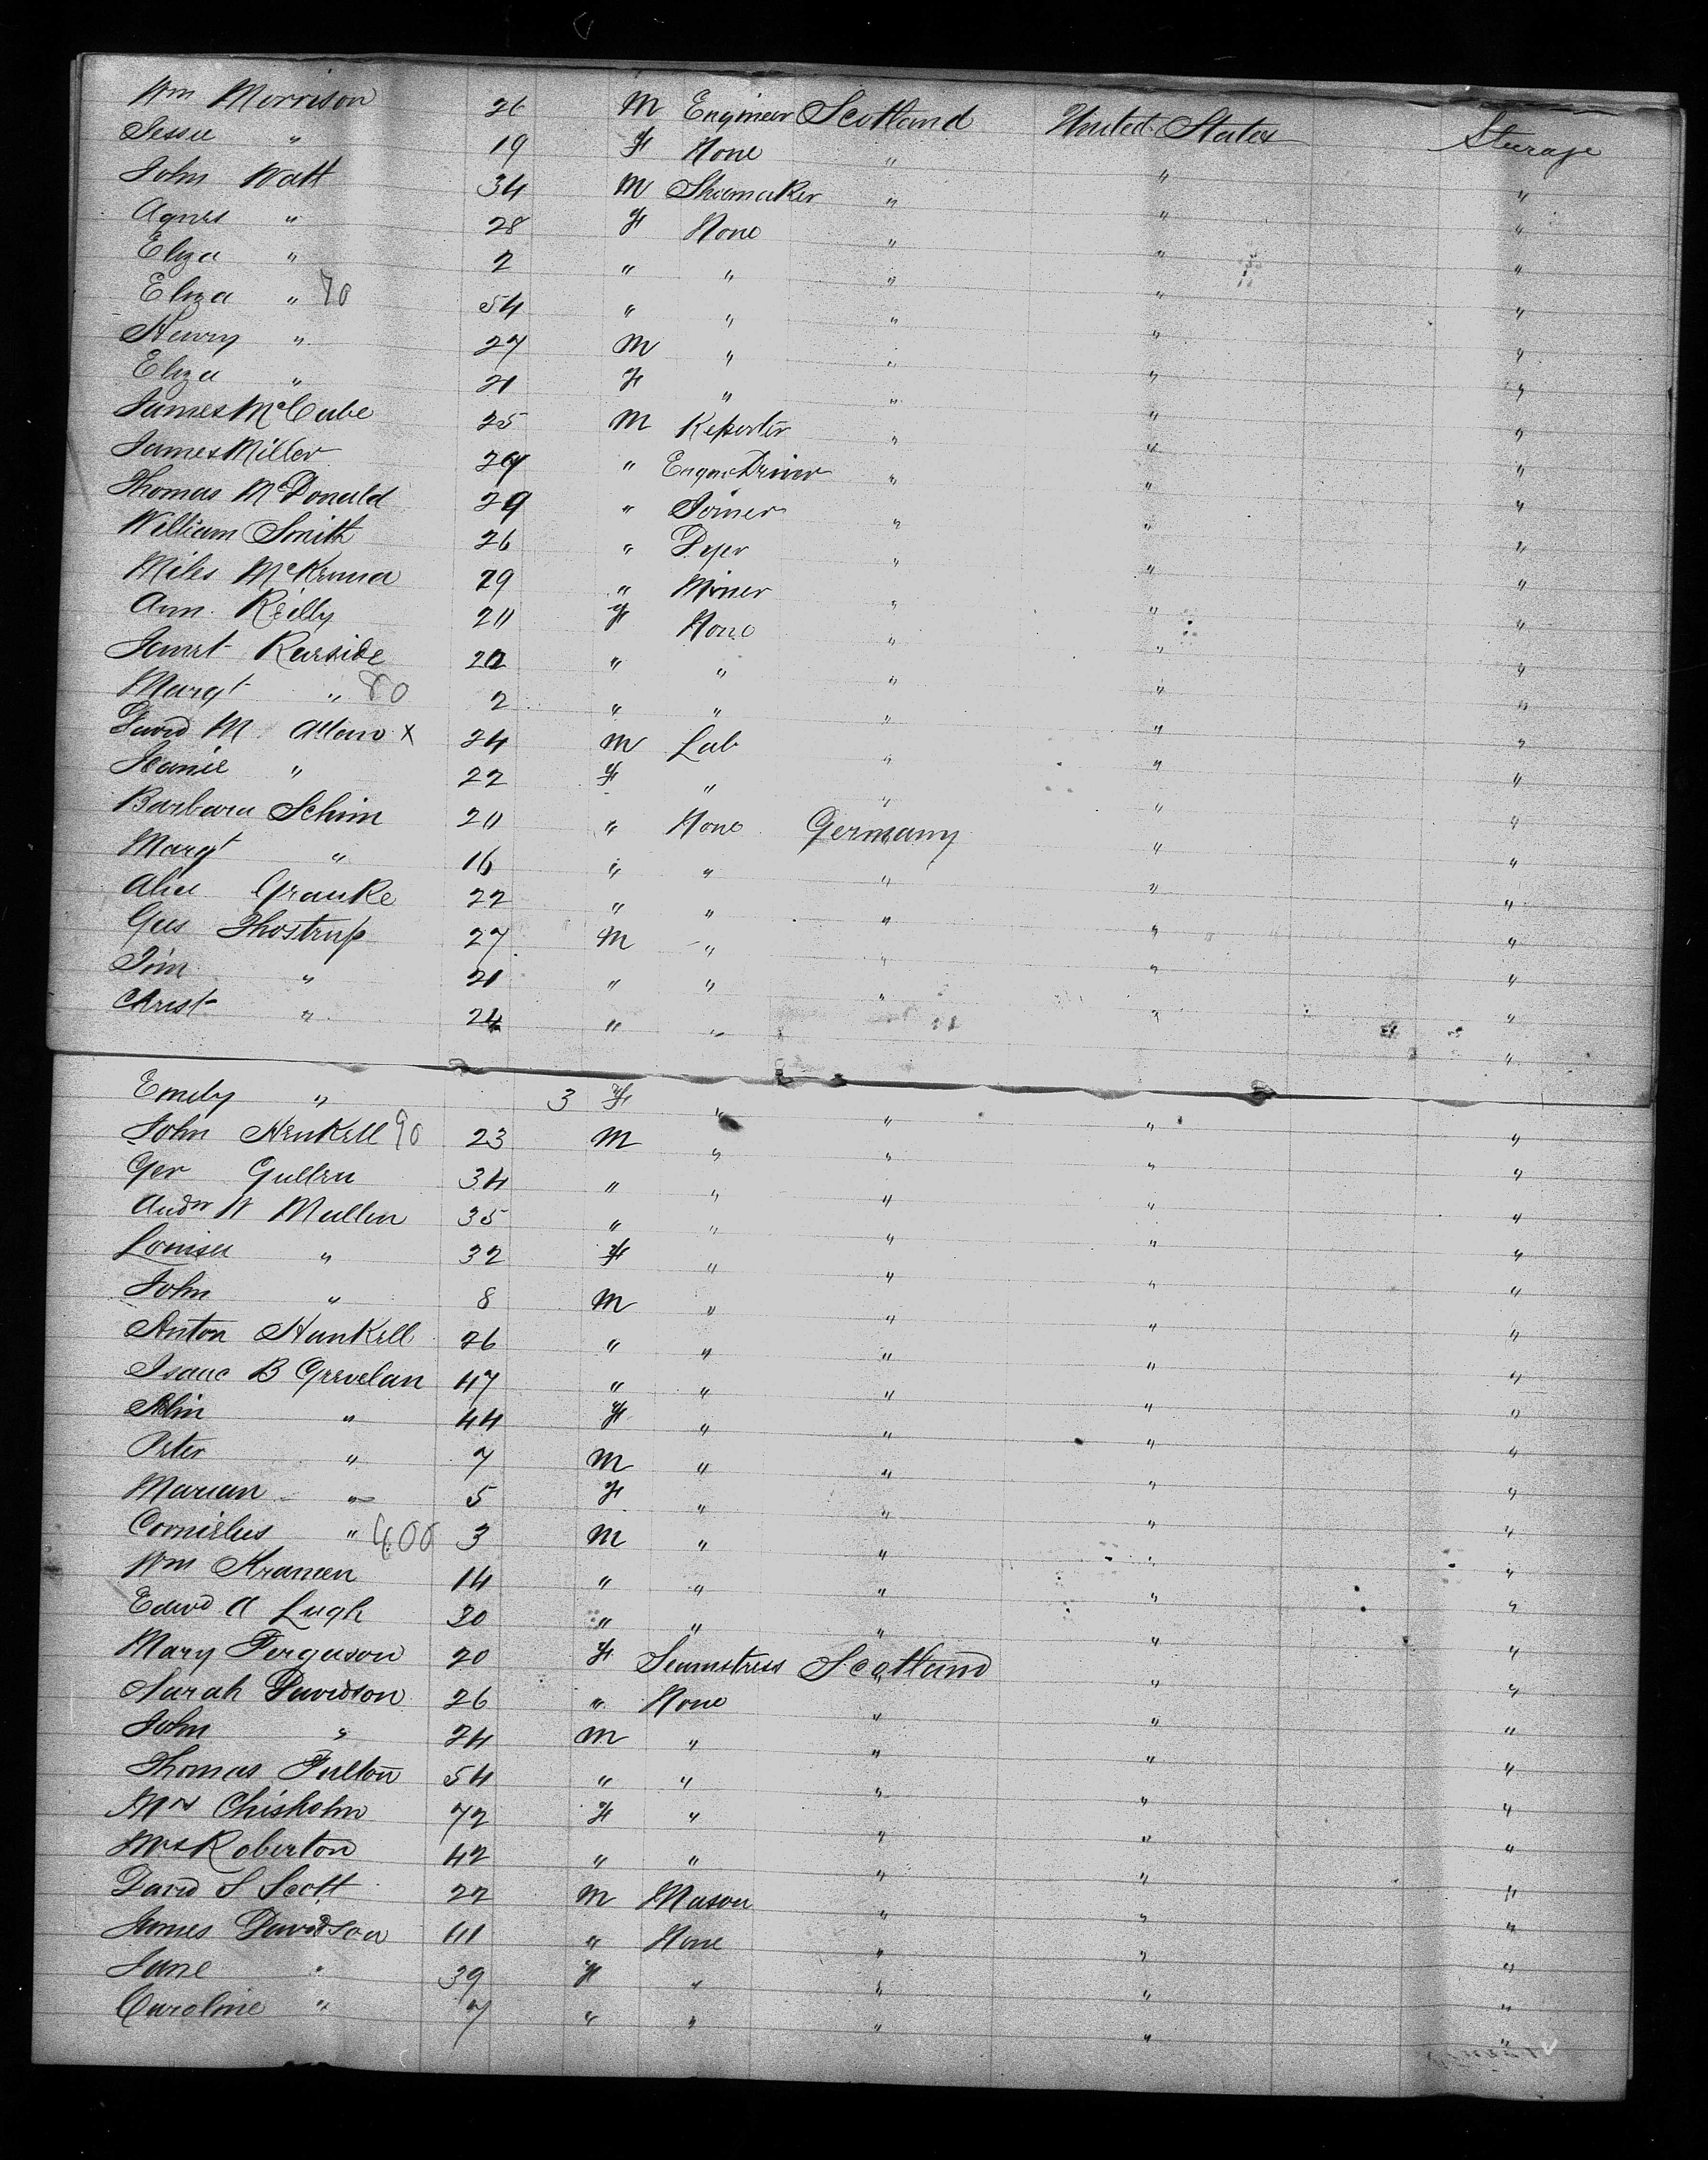 Wm Morrison 26 M Engineer Scotland United States Steerage
Jessie " 19 F None " " "
John Watt 34 M Shoemaker " " "
Agnes " 28 F None " " "
Eliza " 2 " " " " "
Eliza " 70 54 " " " " "
Henry " 27 M " " " "
Eliza " 21 F " " " "
James McCabe 25 M Reporter " " "
James Miller 29 " Engine Driver " " "
Thomas McDonald 29 " Joiner " " "
William Smith 26 " Dyer " " "
Miles McKenna 29 " Miner " " "
Ann Reilly 20 F None " " "
Janet " " " " "
Margt " 80 2 " " " " "
David M. Allan x 24 M Lab " " "
Jeanie " 22 F " " " "
Barbara Schim 20 " None Germany " "
Margt " 16 " " " " "
Alice Granke 22 " " " " "
Gus Thostrup 27 M " " " "
Tim " 21 " " " " "
Christ " 24 " " " "
Emely " 3 F " " " "
John Henkell 90 23 M " " " "
Ger Gullen 34 " " " " "
Andw W Mullen 35 " " " " "
Louisa " 32 F " " " "
John " 8 M " " " "
Anton Hankell 26 " " " " "
Isaac B Grevelan 47 " " " " "
" 44 F " " " "
Peter " 7 M " " " "
Marian " 5 F " " " "
Cornielus " 400 3 M " " " "
Wm Kramen 14 " " " " "
Edwd A Lugh 30 " " " " "
Mary Ferguson 20 F Seamstress Scotland " "
Sarah Davidson 26 " None " " "
John " 24 M " " " "
Thomas Fulton 54 " " " " "
Mrs Chisholm 72 F " " " "
Mrs Roberton 42 " " " " "
David S Scott 22 M Mason " " "
James Davidson 40 " None " " "
Jane " 39 F " " " "
Caroline " 7 " " " " "